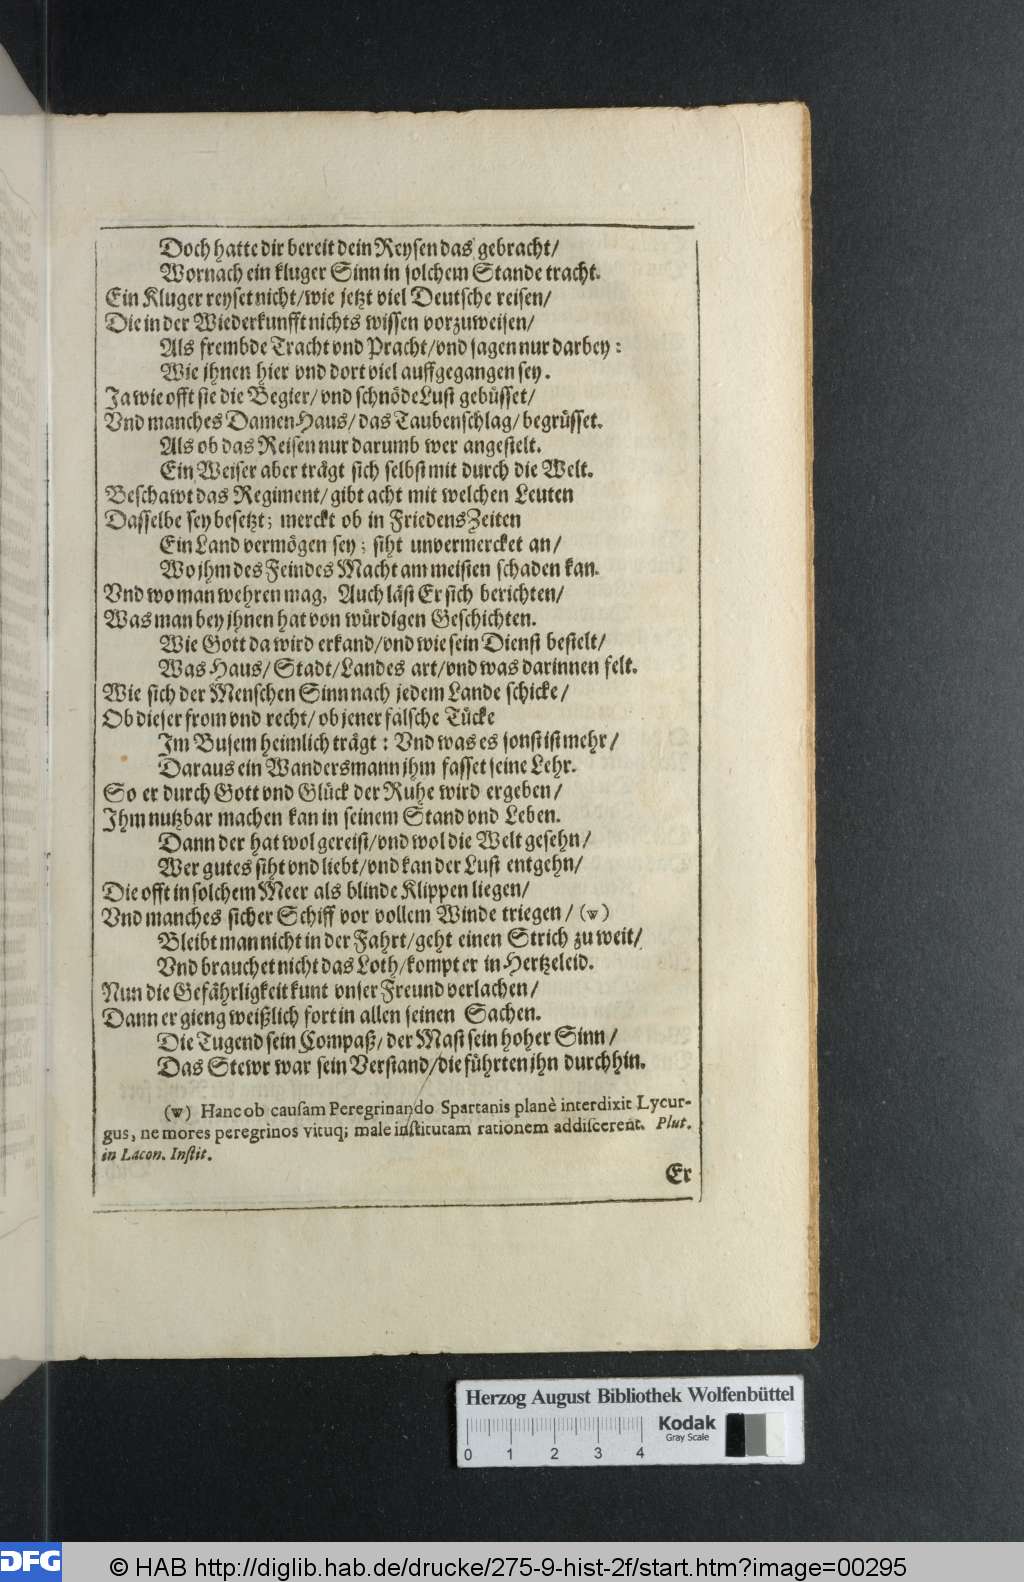 Doch hatte dir bereit dein Reysen das gebracht/
Wornach ein kluger Sinn in solchem Stande tracht.
Ein Kluger reyset nicht/wie jetzt viel Deutsche reisen/
Die in der Wiederkunfft nichts wissen vorzuweisen/
Als frembde Tracht vnd Pracht/vnd sagen nur darbey:
Wie jhnen hier vnd dort viel auffgegangen sey.
Ja wie offt sie die Begier/ vnd schnöde Lust gebüsset/
Vnd manches Damen-Haus/ das Taubenschlag/ begrüsset.
Als ob das Reisen nur darumb wer angestelt.
Ein Weiser aber trägt sich selbst mit durch die Welt.
Beschawt das Regiment/ gibt acht mit welchen Leuten
Dasselbe sey besetzt; merckt ob in FriedensZeiten
Ein Land vermögen sey; siht unvermercket an/
Wo jhm des Feindes Macht am meisten schaden kan.
Vnd wo man wehren mag, Auch läst Er sich berichten/
Was man bey jhnen hat von würdigen Geschichten.
Wie Gott da wird erkand/vnd wie sein Dienst bestelt/
Was Haus/ Stadt/Landes art/vnd was darinnen felt.
Wie sich der Menschen Sinn nach jedem Lande schicke/
Ob dieser from vnd recht/ ob jener falsche Tücke
Im Busem heimlich trägt: Vnd was es sonst ist mehr/
Daraus ein Wandersmann jhm fasset seine Lehr.
So er durch Gott vnd Glück der Ruhe wird ergeben/
Ihm nutzbar machen kan in seinem Stand vnd Leben.
Dann der hat wol gereist/vnd wol die Welt gesehn/
Wer gutes siht vnd liebt/vnd kan der Lust entgehn/
Die offt in solchem Meer als blinde Klippen liegen/
Vnd manches sicher Schiff vor vollem Winde triegen/ (w)
Bleibt man nicht in der Fahrt/geht einen Strich zu weit/
Vnd brauchet nicht das Loth/kompt er in Hertzeleid.
Nun die Gefährligkeit kunt vnser Freund verlachen/
Dann er gieng weißlich fort in allen seinen Sachen.
Die Tugend sein Compaß/ der Mast sein hoher Sinn/
Das Stewr war sein Verstand/die führten jhn durchhin.
(w) Hanc ob causam Peregrinando Spartanis planè interdixit Lycur-
gus, ne mores peregrinos vituq; male institutam rationem addiscerent. Plut.
in Lacon. Instit.
Er
Herzog August Bibliothek Wolfenbüttel
Kodak
Gray Scale
0 1 2 3 4
DFG © HAB http://diglib.hab.de/drucke/275-9-hist-2f/start.htm?image=00295